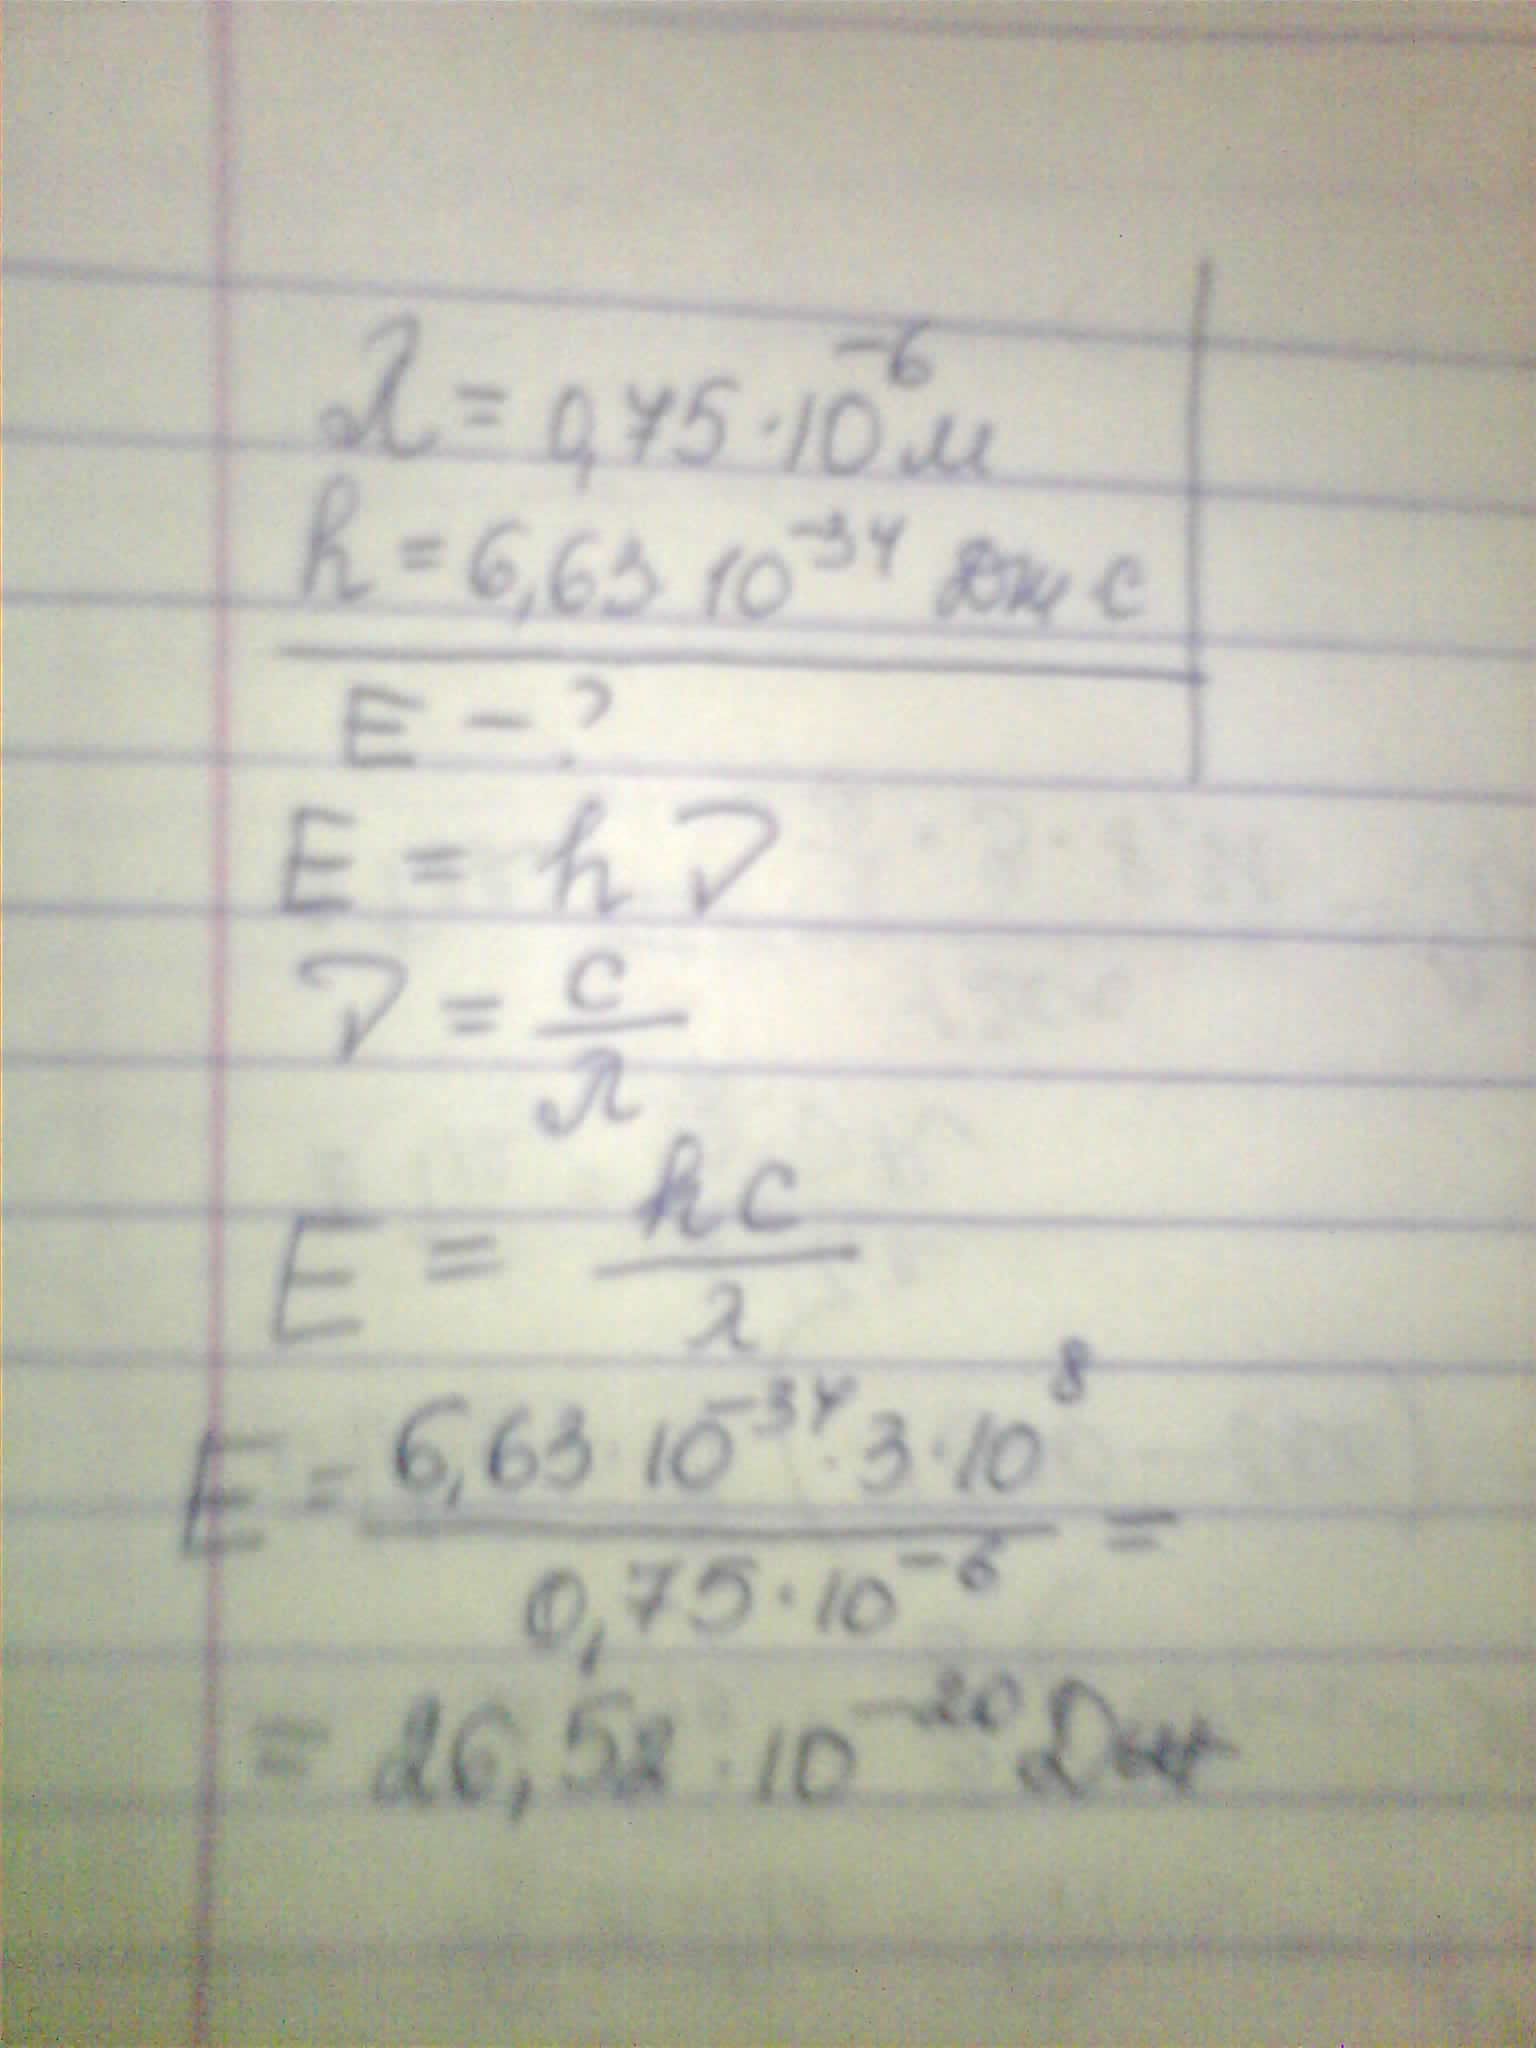 λ = 0,75 · 10⁻⁶ м
h = 6,63 10⁻³⁴ Дж с
E – ?
E = h ν
ν = c/λ
E = hc/λ
E = (6,63 · 10⁻³⁴ · 3 · 10⁸)/(0,75 · 10⁻⁶) =
= 26,52 · 10⁻²⁰ Дж